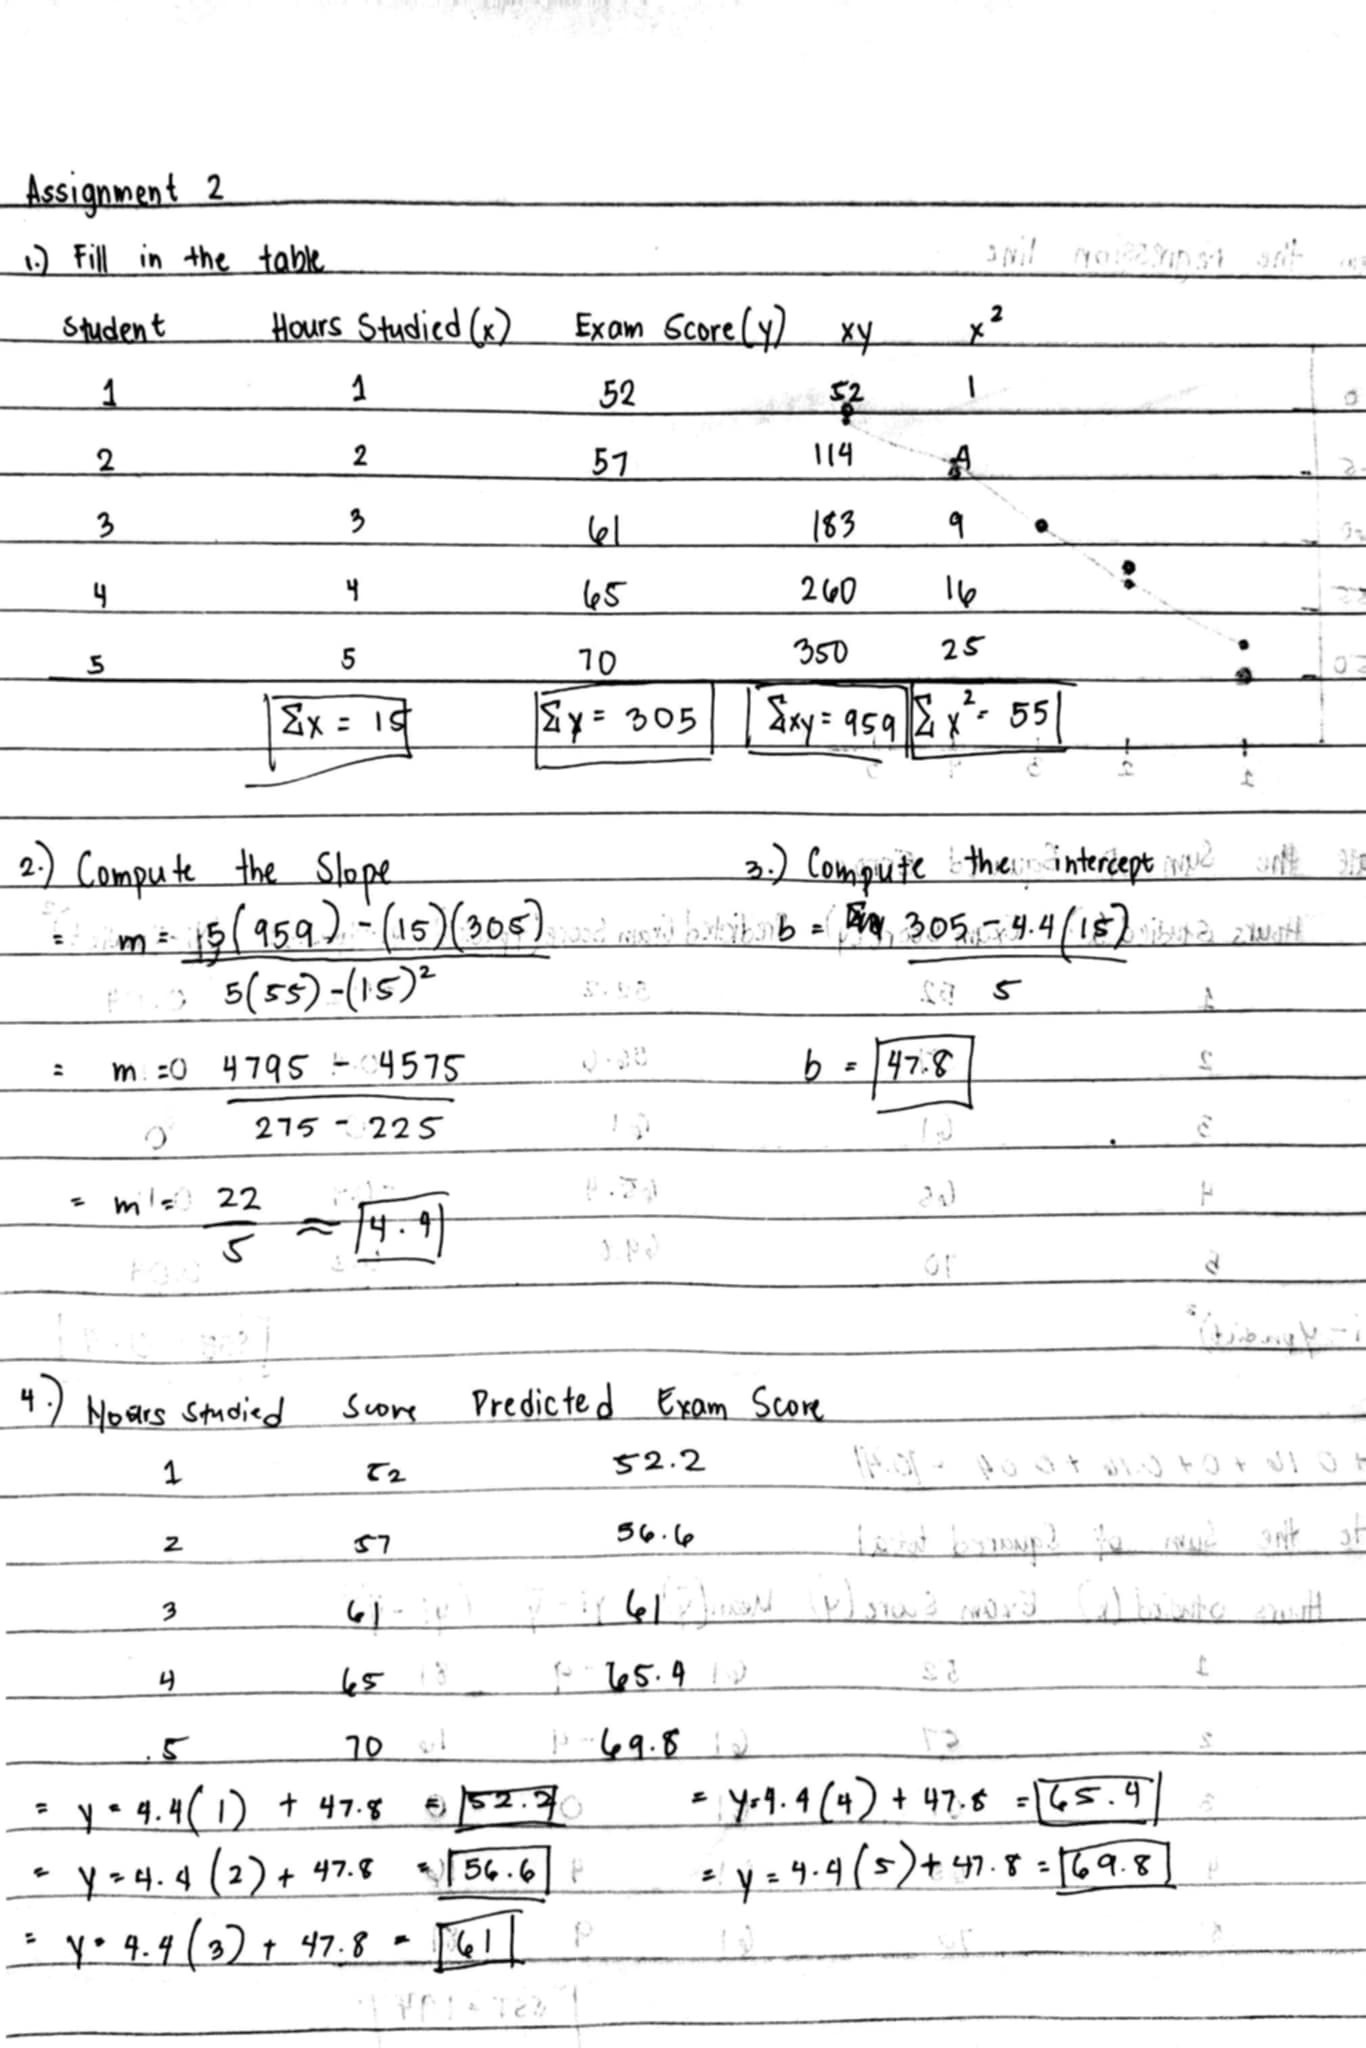 Assignment 2
1.) Fill in the table
Student Hours Studied (x) Exam Score (y) xy x²
1 1 52 52 1
2 2 57 114 4
3 3 61 183 9
4 4 65 260 16
5 5 70 350 25
Σx = 15 Σy = 305 Σxy = 959 Σx² = 55
2.) Compute the Slope
= m = 5(959) - (15)(305)
5(55) - (15)²
= m = 4795 - 4575
275 - 225
= m = 22
5 ≈ 4.4
3.) Compute the intercept
b = 305 - 4.4(15)
5
b = 47.8
4.) Hours Studied Score Predicted Exam Score
1 52 52.2
2 57 56.6
3 61 61
4 65 65.4
5 70 69.8
= y = 4.4(1) + 47.8 = 52.2
= y = 4.4(2) + 47.8 = 56.6
= y = 4.4(3) + 47.8 = 61
= y = 4.4(4) + 47.8 = 65.4
= y = 4.4(5) + 47.8 = 69.8